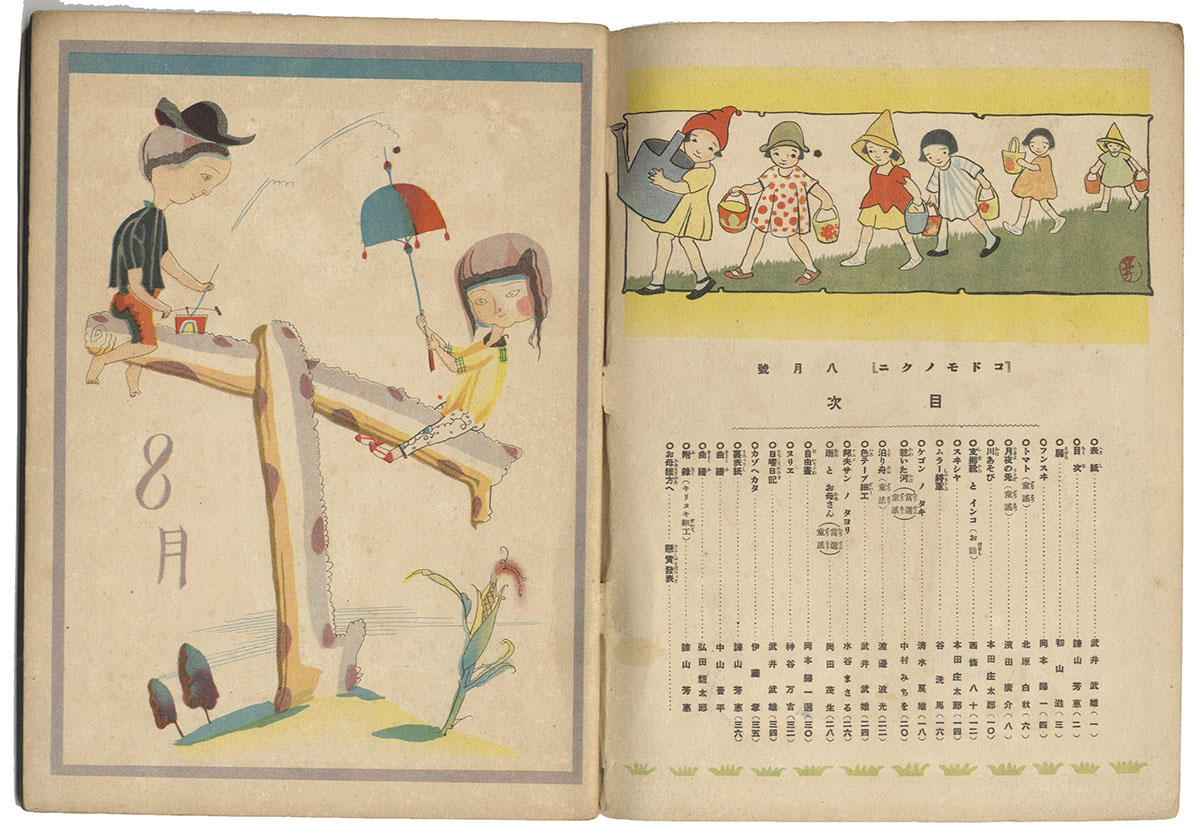 8月
『コドモノクニ』八月號
目次
○表紙……武井武雄(一)
○目次……諫山芳惠(二)
○扇……初山滋(三)
○フンスヰ……岡本歸一(四)
○トマト(童謠)……北原白秋(六)
○月夜の兎(童謠)……濱田廣介(八)
○川あそび……本田庄太郎(一〇)
○支那靴とインコ(お話)……西條八十(一二)
○スヰシヤ……本田庄太郎(一四)
○ムラー將軍……谷洗馬(一六)
○ケゴンノタキ……清水良雄(一八)
○乾いた河(當選童謠)……中村みちを(二〇)
○泊り舟(童謠)……渡邊波光(二二)
○色テープ細工……武井武雄(二四)
○邦夫サンノタヨリ……水谷まさる(二六)
○雨とお母さん(當選童謠)……岡田茂生(二八)
○自由畫……岡本歸一選(三〇)
○ヌリエ……神谷万吉(三二)
○日曜日記……武井武雄(三四)
○カゾヘカタ……伊藤孝(三五)
○裏表紙……諫山芳惠(三六)
○曲譜……中山晋平
○曲譜……弘田龍太郎
○附錄(キリヌキ細工)……諫山芳惠
○お母樣方へ……懸賞發表……